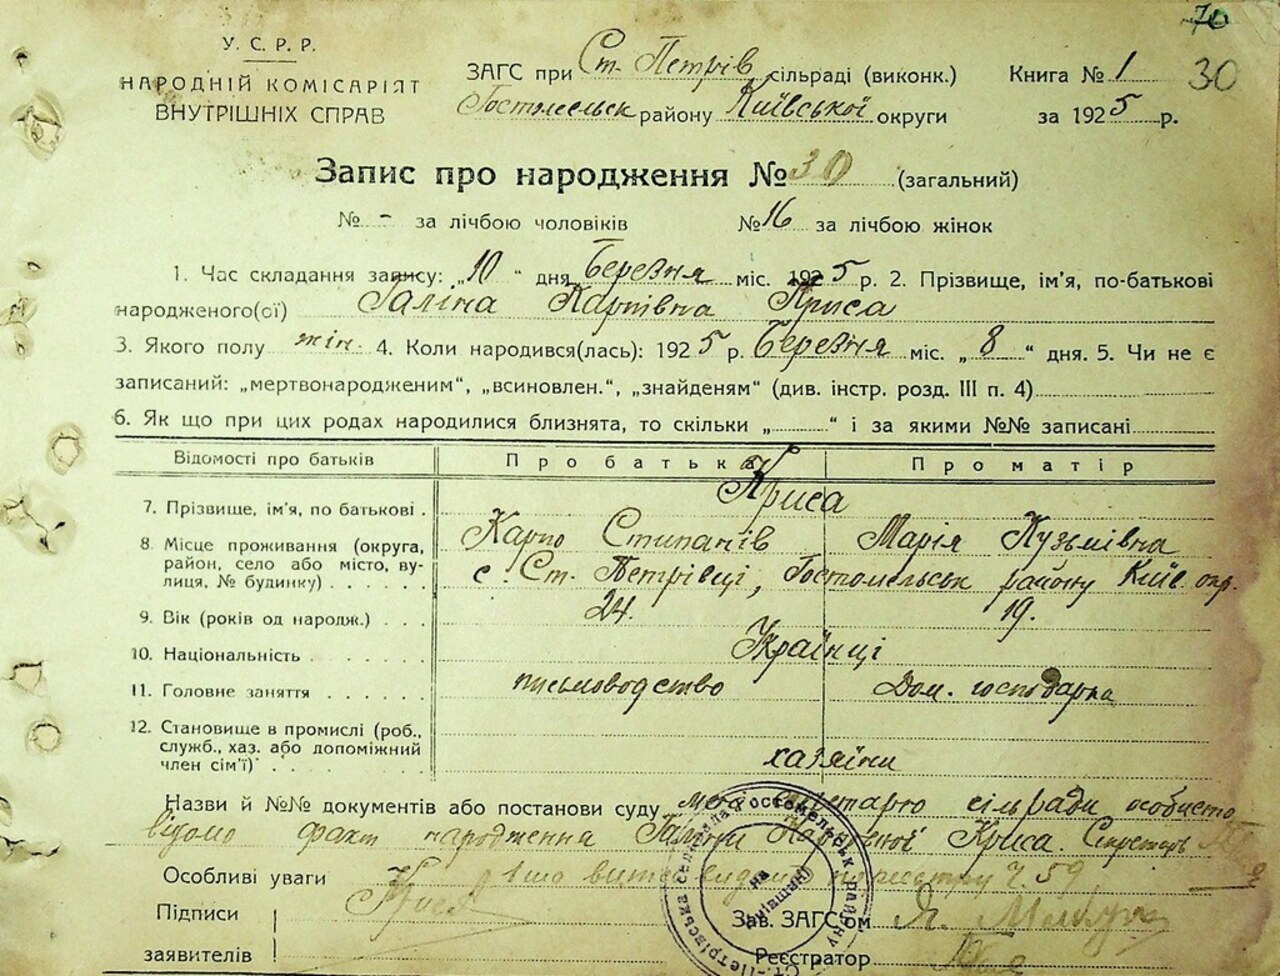 70
У. С. Р. Р.
НАРОДНІЙ КОМІСАРІЯТ
ВНУТРІШНІХ СПРАВ
ЗАГС при Ст. Петрів сільраді (виконк.) Книга № 1 30
Гостомельськ району Київської округи за 1925 р.
Запис про народження № 30 (загальний)
№ - за лічбою чоловіків № 16 за лічбою жінок
1. Час складання запису: „10 “ дня Березня міс. 1925 р. 2. Прізвище, ім'я, по-батькові
народженого(ої) Галіна Карпівна Криса
3. Якого полу жін. 4. Коли народився(лась): 1925 р. Березня міс. „ 8 “ дня. 5. Чи не є
записаний: „мертвонародженим“, „всиновлен.“, „знайденям“ (див. інстр. розд. III п. 4)
6. Як що при цих родах народилися близнята, то скільки „ “ і за якими №№ записані
Відомості про батьків Про батька Про матір
Криса
7. Прізвище, ім'я, по батькові .
Карпо Стипанів Марія Кузьмівна
8. Місце проживання (округа,
район, село або місто, вулиця, № будинку) с. Ст. Петрівці, Гостомельськ району Київ. окр.
9. Вік (років од народж.) 24. 19.
10. Національність Українці
11. Головне заняття письмоводство Дом. господарка
12. Становище в промислі (роб.,
служб., хаз. або допоміжний
член сім'ї) хазяїни
Назви й №№ документів або постанови суду мені секретарю сільради особисто
відомо факт народження Галіни Карпівної Криса. Секретарь
Особливі уваги
Підписи Криса Зав. ЗАГС'ом
заявителів Реєстратор
Ст.-Петрівська сільрада Гостомельськ району
на